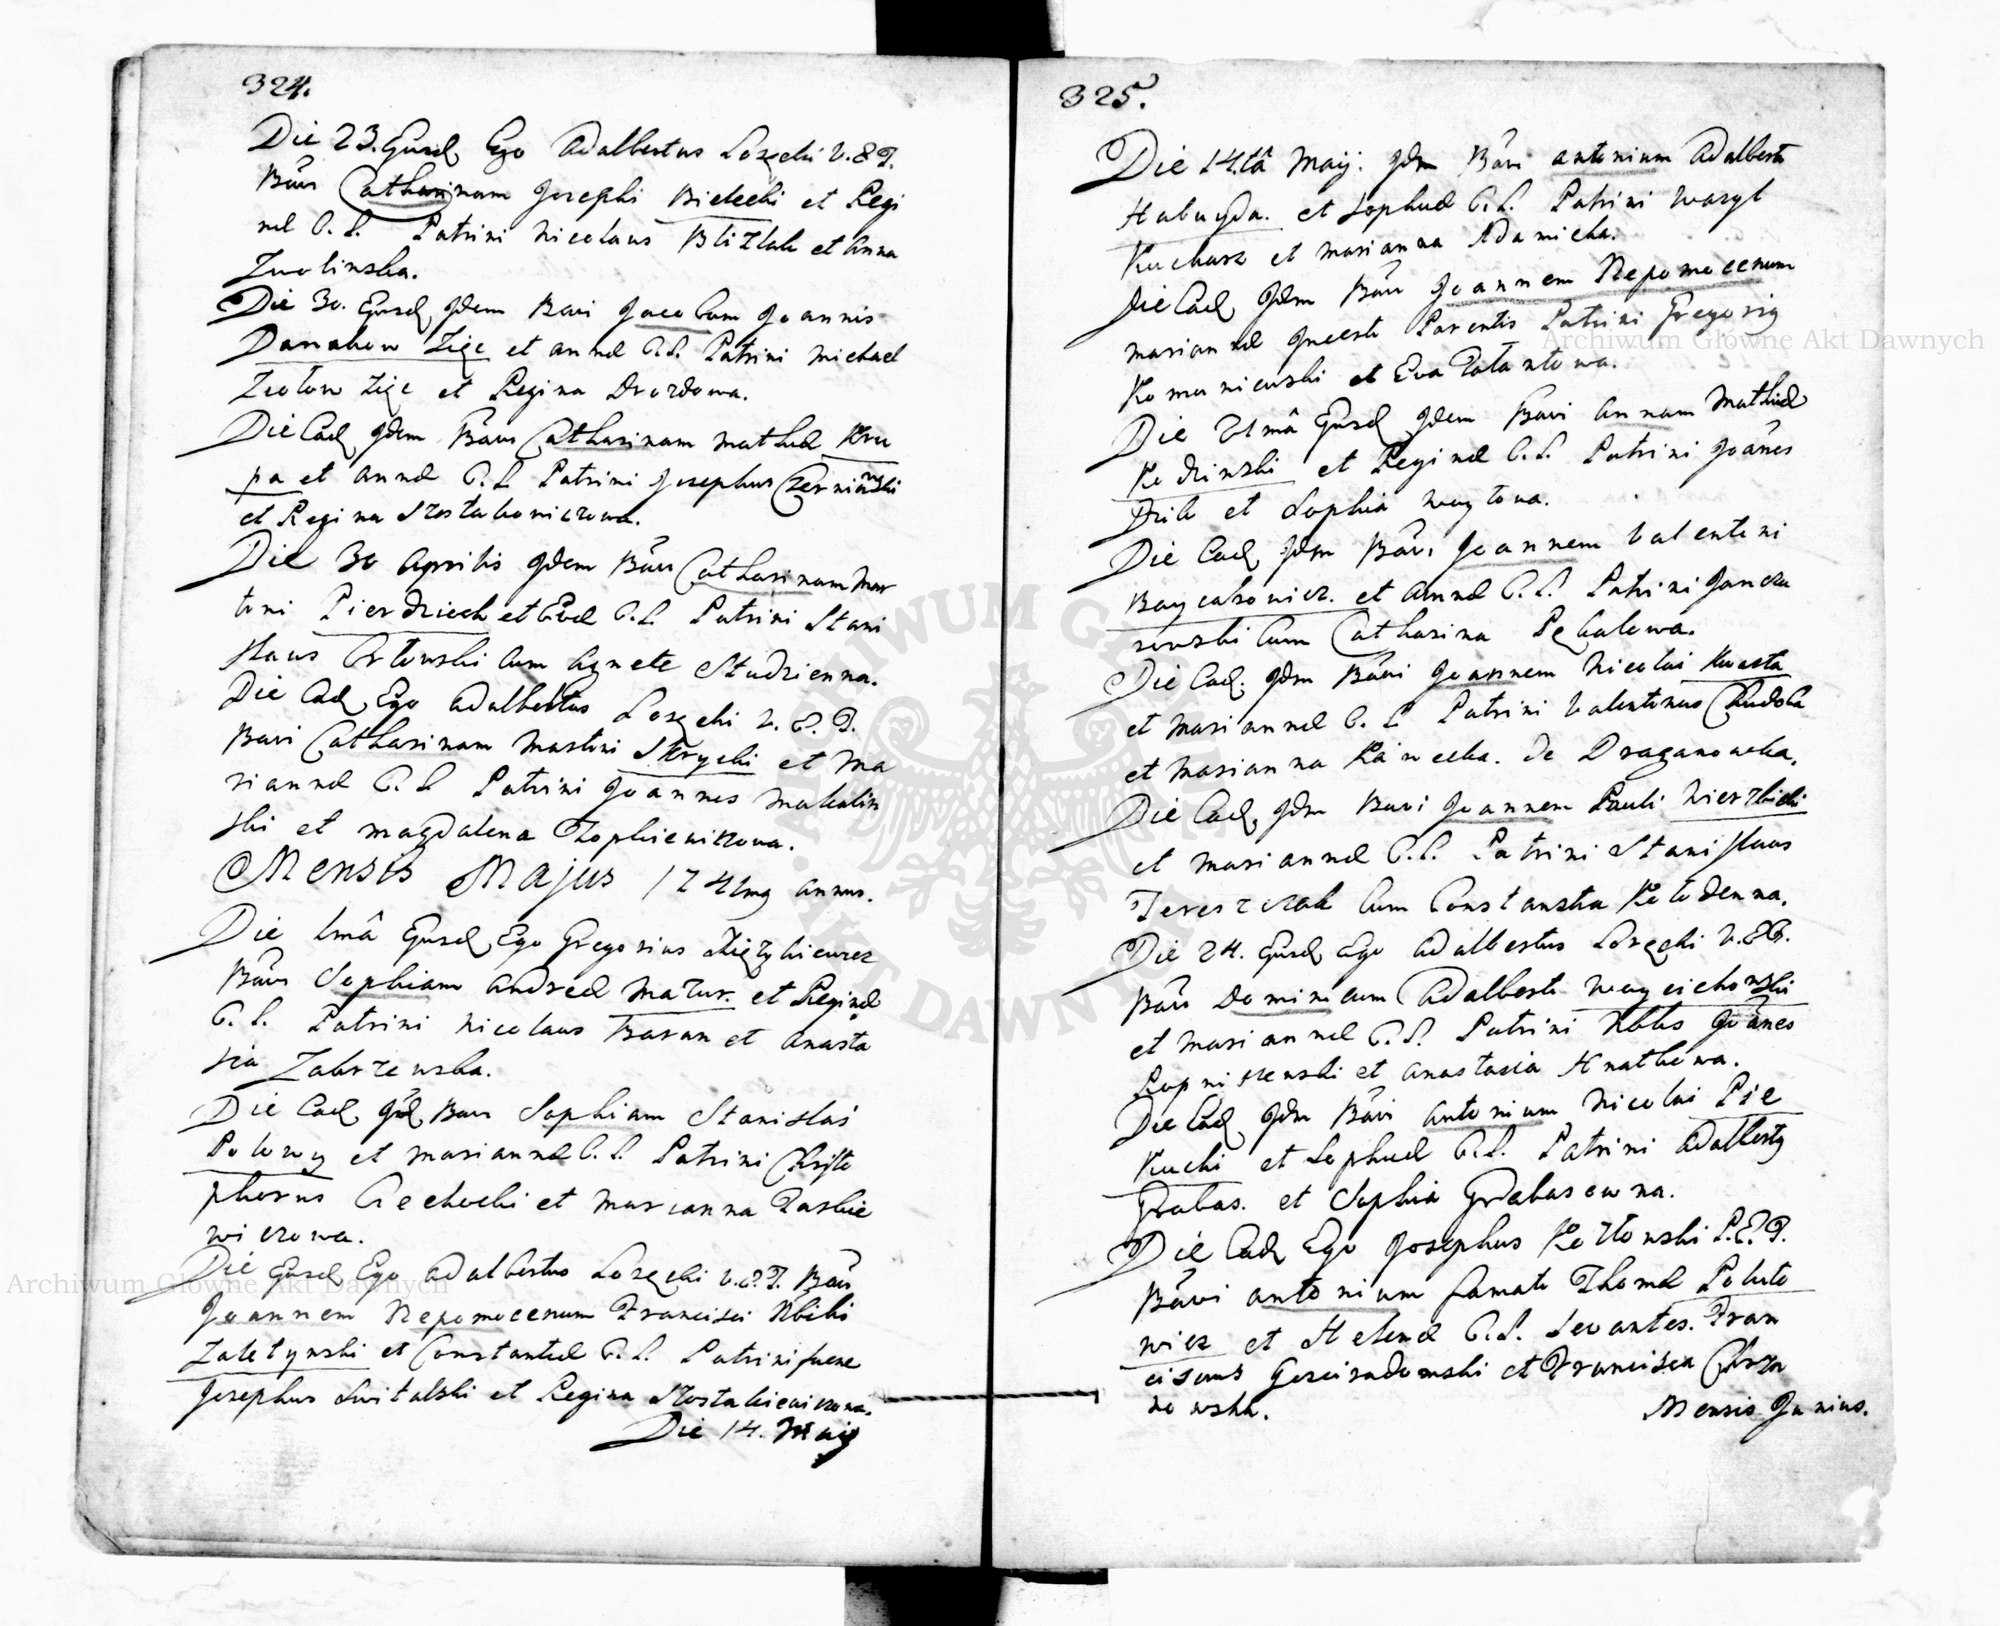 324.
Die 23. Eusd. Ego Adalbertus Lozecki V. & P.
Bavi Catharinam Josephi Bielecki et Regi
nae C. L. Patrini Nicolaus Blizlak et Anna
Zwolinska.
Die 30. Eusd. Idem Bavi Jacobum Joannis
et Annae C. L. Patrini Michael
et Regina Drozdowa.
Die Ead. Idem Bavi Catharinam Mathiae Kru
pa et Annae C. L. Patrini Josephus Czerniawski
et Regina Szostakowiczowa.
Die 30 Aprilis Idem Bavi Catharinam Mar
tini Pierdziech et Evae C. L. Patrini Stani
slaus Orlowski cum Agnete Studzienna.
Die Ead. Ego Adalbertus Lozecki V. & P.
Bavi Catharinam Martini Skrycki et Ma
riannae C. L. Patrini Joannes Makalin
ski et Magdalena
Mensis Majus 1741mg annus.
Die 1mâ Eusd. Ego Gregorius
Bavi Sophiam Andreae Mazur. et Reginae
C. L. Patrini Nicolaus Baran et Anasta
sia Zakrzewska.
Die Ead. Id. Bavi Sophiam Stanislai
Polowy et Mariannae C. L. Patrini Christo
phorus et Marianna Paskie
wiczowa.
Die Eusd. Ego Adalbertus Lozecki V. & P. Bavi
Joannem Nepomocenum Francisci Nbilis
Zaletynski et Constantiae C. L. Patrini fuere
Josephus Switalski et Regina Szostakiewiczowa.
Die 14. Maij
325.
Die 14.tâ Maij. Idm Bavi Antonium Adalberti
Habuyda. et Sophiae C. L. Patrini Wasyl
Kucharz et Marianna Adamicha.
Die Ead. Idm Bavi Joannem Nepomocenum
Mariannae Incerti Parentis Patrini Gregorig
Komarnicwski et Eva
Die 21mâ Eusd. Idem Bavi Annam Mathiae
Kodzinski et Reginae C. L. Patrini Joânes
Dzik et Sophia Woytowa.
Die Ead. Idm Bavi Joannem Valentini
et Annae C. L. Patrini Jancza
rowski cum Catharina Pękalowa.
Die Ead. Idm Bavi Joannem Nicolai Kwasta
et Mariannae C. L. Patrini Valentinus Chudoba
et Marianna de Draganowka.
Die Ead. Idm Bavi Joannem Pauli Wierzbicki
et Mariannae C. L. Patrini Stanislaus
Tereszczak cum Constantia Kolodenna.
Die 24. Eusd. Ego Adalbertus Lozecki V. & P.
Bavi Dominicum Adalberti Woyciechowski
et Mariannae C. L. Patrini Nblis Joânes
et Anastasia Hnatkowa.
Die Ead. Idm Bavi Antonium Nicolai Pie
Kucki et Sophiae C. L. Patrini Adalbertg
Grabas. et Sophia Grabasowna.
Die Ead. Ego Josephus Kozlowski P. C. P.
Bavi Antonium Famati Thomae Poluto
wicz et Helenae C. L. Levantes. Fran
ciscus Gosciradowski et Francisca Chrza
nowska.
Mensis Junius.
Archiwum Główne Akt Dawnych
Archiwum Główne Akt Dawnych
ARCHIWUM GŁÓWNE AKT DAWNYCH